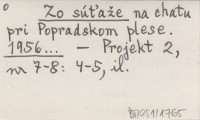 Zo súťaže na chatu
pri Popradskom plese.
1956... — Projekt 2,
nr 7-8: 4-5, il.